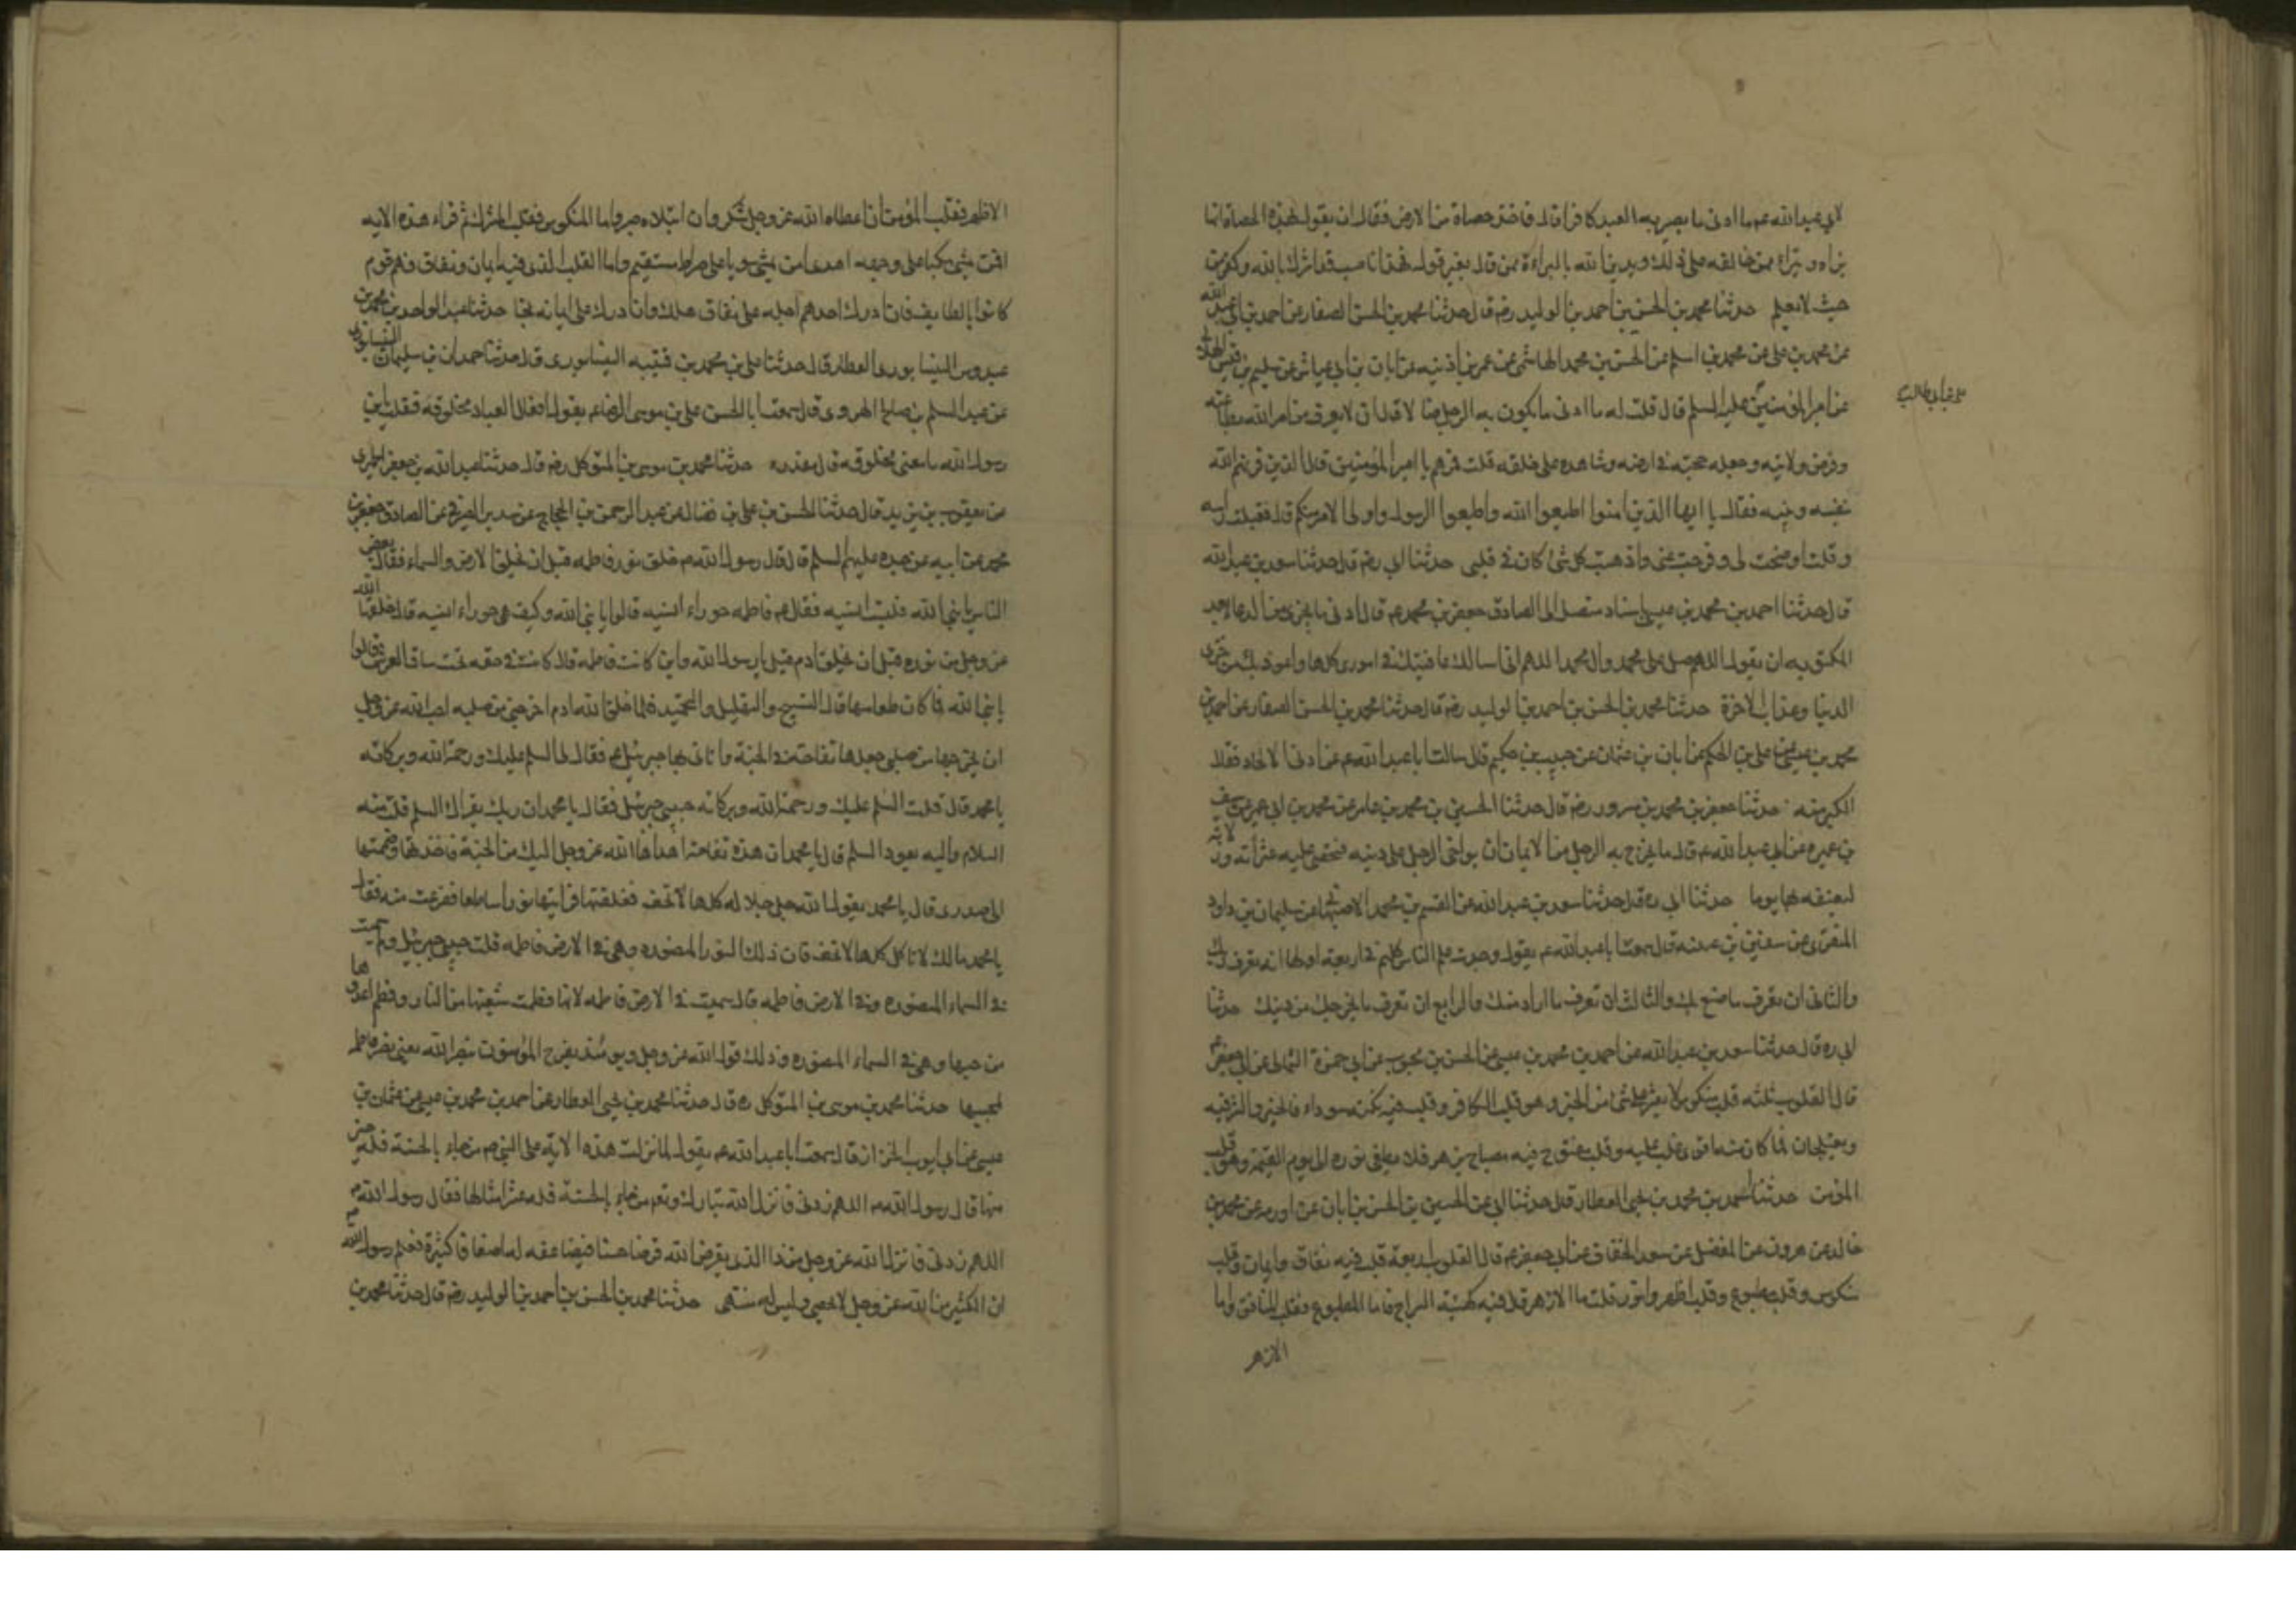 لابي عبد الله عم ما ادنى ما يصير به العبد كافرا قال فاخذ حصاة من الارض فقال ان يقول لهذه الحصاة انها
نواه و يبراء ممن خالفه على ذلك ويدين الله بالبراءة ممن قال بغير قوله فهذا ناصب قد اشرك بالله وكفر من
حيث لا يعلم حدثنا محمد بن الحسن بن احمد بن الوليد رضه قال حدثنا محمد بن الحسن الصفار عن احمد بن ابي عبد الله
عن محمد بن على عن محمد بن اسلم عن الحسن بن محمد الهاشمى عن عمر بن اذنيه عن ابان بن ابي عياش عن سليم بن قيس الهلالى
عن امير المؤمنين عليه السلم قال قلت له ما ادنى ما يكون به الرجل ضالا قال ان لا يعرف من امر الله بطاعته
على بن ابي طالب
وفرض ولايته وجعله حجته فى ارضه وشاهده على خلقه قلت فمن هم يا امير المؤمنين قال الذين قرنهم الله
بنفسه ونبيه فقال يا ايها الذين امنوا اطيعوا الله واطيعوا الرسول واولى الامر منكم قال فقبلت راسه
وقلت اوضحت لى وفرجت عنى واذهبت كل شئ كان فى قلبى حدثنا ابي رضه قال حدثنا سعد بن عبد الله
قال حدثنا احمد بن محمد بن عيسى باسناد متصل الى الصادق جعفر بن محمد عم قال ادنى ما يجزى من الدعا بعد
المكتوبه ان يقول اللهم صل على محمد وال محمد اللهم انى اسالك عافيتك فى امورى كلها واعوذ بك من خزى
الدنيا وعذاب الاخرة حدثنا محمد بن الحسن بن احمد بن الوليد رضه قال حدثنا محمد بن الحسن الصفار عن احمد بن
محمد بن عيسى عن على بن الحكم عن ابان بن عثمان عن حبيب بن حكيم قال سالت ابا عبد الله عم عن ادنى الالحاد فقال
الكبر منه حدثنا جعفر بن محمد بن مسرور رضه قال حدثنا الحسين بن محمد بن عامر عن محمد بن ابي عمير عن سيف
بن عميره عن ابي عبد الله عم قال ما يخرج به الرجل من الايمان ان يواخى الرجل على دينه فيحصى عليه عثراته وزلاته
ليعنفه بها يوما حدثنا ابى ره قال حدثنا سعد بن عبد الله عن القسم بن محمد الاصبهانى عن سليمان بن داود
المنقرى عن سفين بن عيينه قال سمعت ابا عبد الله عم يقول وجدت علم الناس كلهم فى اربعة اولها ان تعرف ربك
والثانى ان تعرف ما صنع بك والثالث ان تعرف ما اراد منك والرابع ان تعرف ما يخرجك من دينك حدثنا
ابى ره قال حدثنا سعد بن عبد الله عن احمد بن محمد بن عيسى عن الحسن بن محبوب عن ابي حمزة الثمالى عن ابي جعفر عم
قال القلوب ثلثه قلب منكوس لا يعثر على شئ من الخير وهو قلب الكافر وقلب فيه نكتة سوداء فالخير والشر فيه
ويعتلجان فما كان منه اقوى غلب عليه وقلب مفتوح فيه مصباح يزهر فلا يطفى نوره الى يوم القيمة وهو قلب
المؤمن حدثنا احمد بن محمد بن يحيى العطار قال حدثنا ابى عن الحسين بن الحسن بن ابان عن اورمه عن محمد بن
خالد عن هرون عن المفضل عن سعد الخفاف عن ابي جعفر عم قال القلوب اربعة قلب فيه نفاق وايمان وقلب
منكوس وقلب مطبوع وقلب اظهر وانور قلت ما الازهر قال فيه كهيئة السراج فاما المطبوع فقلب المنافق واما
الازهر
الاظهر فقلب المؤمن ان اعطاه الله عز وجل شكر وان ابتلاه صبر واما المنكوس فقلب المشرك ثم قراء هذه الايه
افمن يمشى مكبا على وجهه اهدى امن يمشى سويا على صراط مستقيم واما القلب الذى فيه ايمان ونفاق فهم قوم
كانوا بالطايف فان ادرك احدهم اجله على نفاق هلك وان ادرك على ايمانه نجا حدثنا عبد الواحد بن محمد بن
عبدوس النيسابورى العطار قال حدثنا على بن محمد بن قتيبه النيسابورى قال حدثنا حمدان بن سليمان النيسابورى
عن عبد السلم بن صالح الهروى قال سمعت ابا الحسن على بن موسى الرضا عم يقول افعال العباد مخلوقه فقلت يا بن
رسول الله ما معنى مخلوقه قال مقدره حدثنا محمد بن موسى بن المتوكل رضه قال حدثنا عبد الله بن جعفر الحميرى
عن يعقوب بن يزيد قال حدثنا الحسن بن على بن فضال عن عبد الرحمن بن الحجاج عن سدير الصيرفى عن الصادق جعفر بن
محمد عن ابيه عن جده عليهم السلم قال قال رسول الله ص خلق نور فاطمه قبل ان يخلق الارض والسماء فقال بعض
الناس يا نبى الله فليست انسيه فقال عم فاطمه حوراء انسيه قالوا يا نبى الله وكيف هى حوراء انسيه قال خلقها الله
عز وجل من نوره قبل ان يخلق ادم قيل يا رسول الله واين كانت فاطمه قال كانت فى حقه تحت ساق العرش قالوا
يا نبى الله فما كان طعامها قال التسبيح والتهليل والتحميد فلما خلق الله ادم اخرجنى من صلبه احب الله عز وجل
ان يخرجها من صلبى جعلها تفاحة فى الجنة واتانى بها جبرئيل عم فقال لى السلم عليك ورحمة الله وبركاته
يا محمد قال قلت السلم عليك ورحمة الله وبركاته حبيبى جبرئيل فقال يا محمد ان ربك يقراك السلم قلت منه
السلام واليه يعود السلم قال يا محمد ان هذه تفاحة اهداها الله عز وجل اليك من الجنة فاخذتها وضممتها
الى صدرى قال يا محمد يقول الله جل جلاله كلها لا تخف ففلقتها فرايتها نورا ساطعا ففزعت منه فقال
يا محمد مالك لا تاكل كلها لا تخف فان ذلك النور المنصوره وهى فى الارض فاطمه قلت حبيبى جبرئيل ولم سميت
فى السماء المنصوره وفى الارض فاطمه قال سميت فى الارض فاطمه لانها فطمت شيعتها من النار وفطم اعداؤها
من حبها وهى فى السماء المنصوره وذلك قول الله عز وجل ويومئذ يفرح المؤمنون بنصر الله يعنى نصر فاطمه
لمحبيها حدثنا محمد بن موسى بن المتوكل ره قال حدثنا محمد بن يحيى العطار عن احمد بن محمد بن عيسى عن عثمان بن
عيسى عن ابي ايوب الخزاز قال سمعت ابا عبد الله عم يقول لما نزلت هذه الاية على النبى ص من جاء بالحسنة فله خير
منها قال رسول الله ص اللهم زدنى فانزل الله تبارك وتعم من جاء بالحسنة فله عشر امثالها فقال رسول الله ص
اللهم زدنى فانزل الله عز وجل من ذا الذى يقرض الله قرضا حسنا فيضاعفه له اضعافا كثيرة فعلم رسول الله
ان الكثير من الله عز وجل لا يحصى وليس له منتهى حدثنا محمد بن الحسن بن احمد بن الوليد رضه قال حدثنا محمد بن